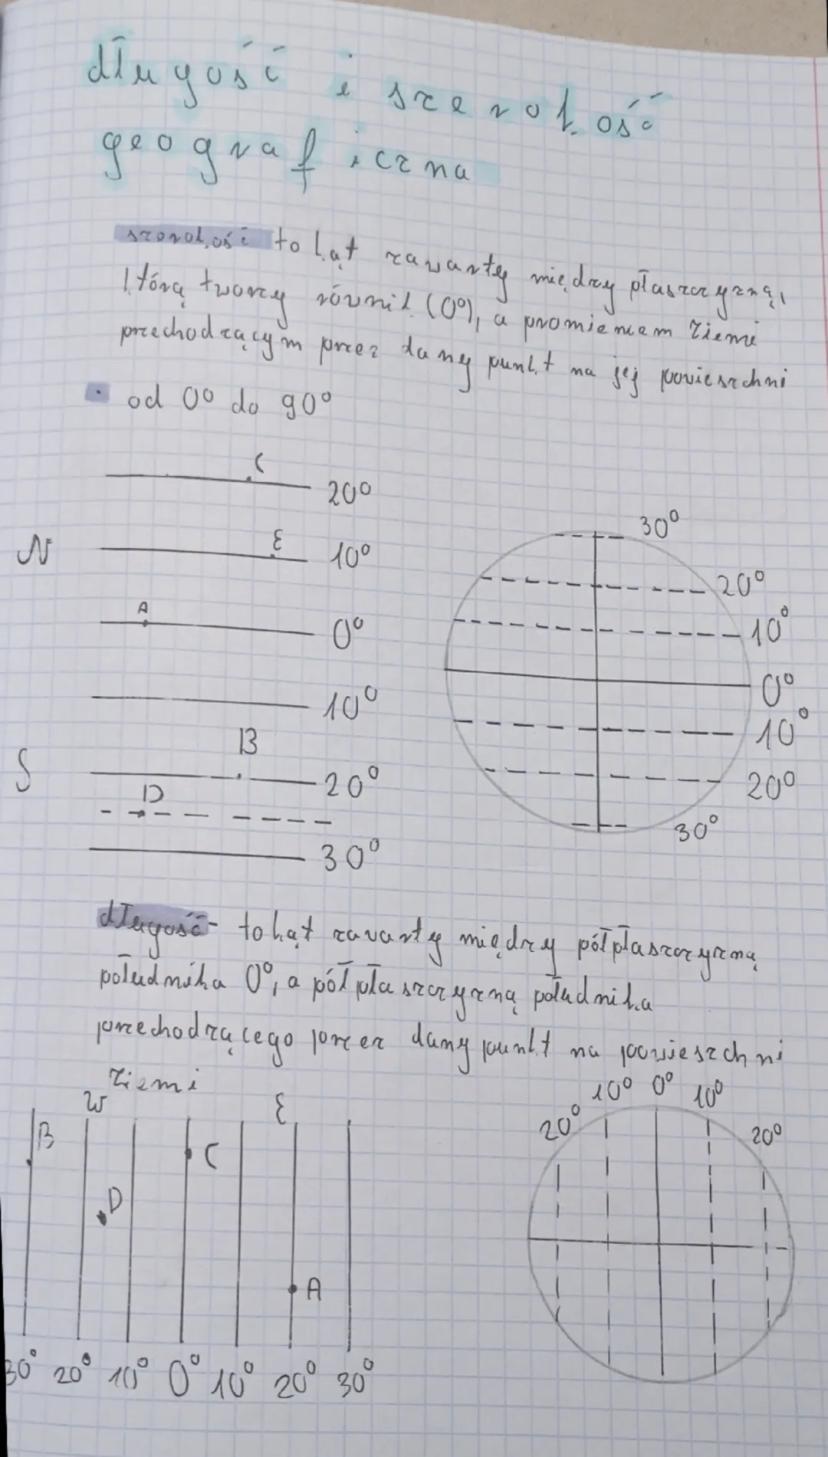 długość i szerokość
geograficzna
szerokość to kąt zawarty między płaszczyzną,
którą tworzy równik (0°), a promieniem ziemi
przechodzącym przez dany punkt na jej powierzchni
• od 0° do 90°
C
20°
N
E
10°
A
0°
10°
B
S
20°
D
30°
30°
20°
10°
0°
10°
20°
30°
długość - to kąt zawarty między półpłaszczyzną
południka 0°, a półpłaszczyzną południka
przechodzącego przez dany punkt na powierzchni
ziemi
W
E
B
C
D
A
30° 20° 10° 0° 10° 20° 30°
20° 10° 0° 10° 20°